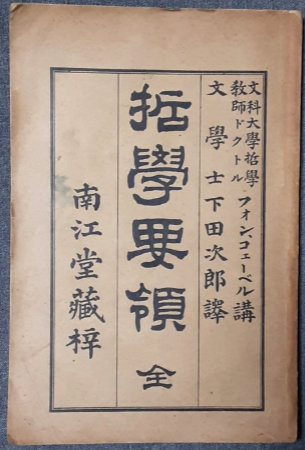 文科大學哲學
教師ドクトル フォン、コェーベル講
文學士下田次郎譯
哲學要領 全
南江堂藏梓